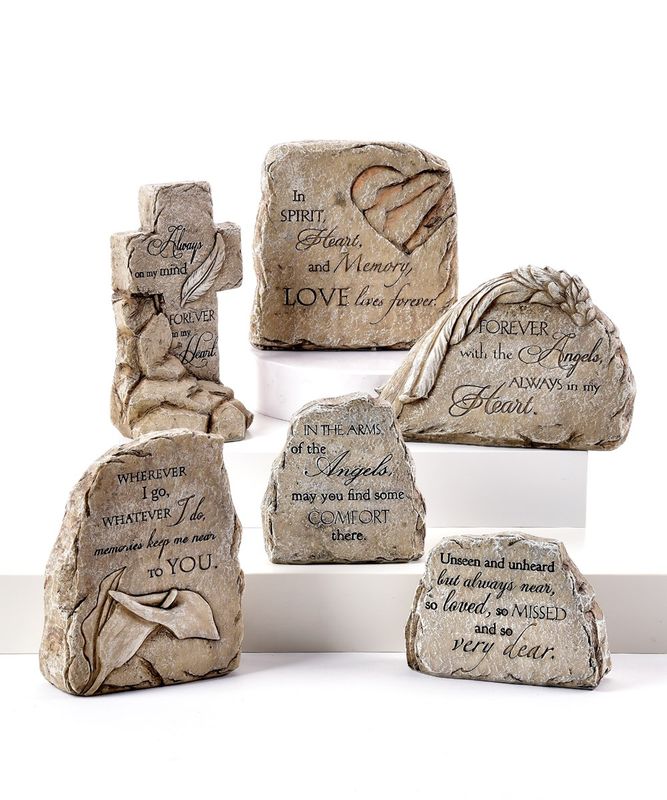 In
SPIRIT,
Heart,
and Memory,
LOVE lives forever.
Always
on my mind
FOREVER
in my
Heart.
FOREVER
with the Angels,
ALWAYS in my
Heart.
IN THE ARMS
of the
Angels,
may you find some
COMFORT
there.
WHEREVER
I go,
WHATEVER I do,
memories keep me near
TO YOU.
Unseen and unheard
but always near,
so loved, so MISSED
and so
very dear.